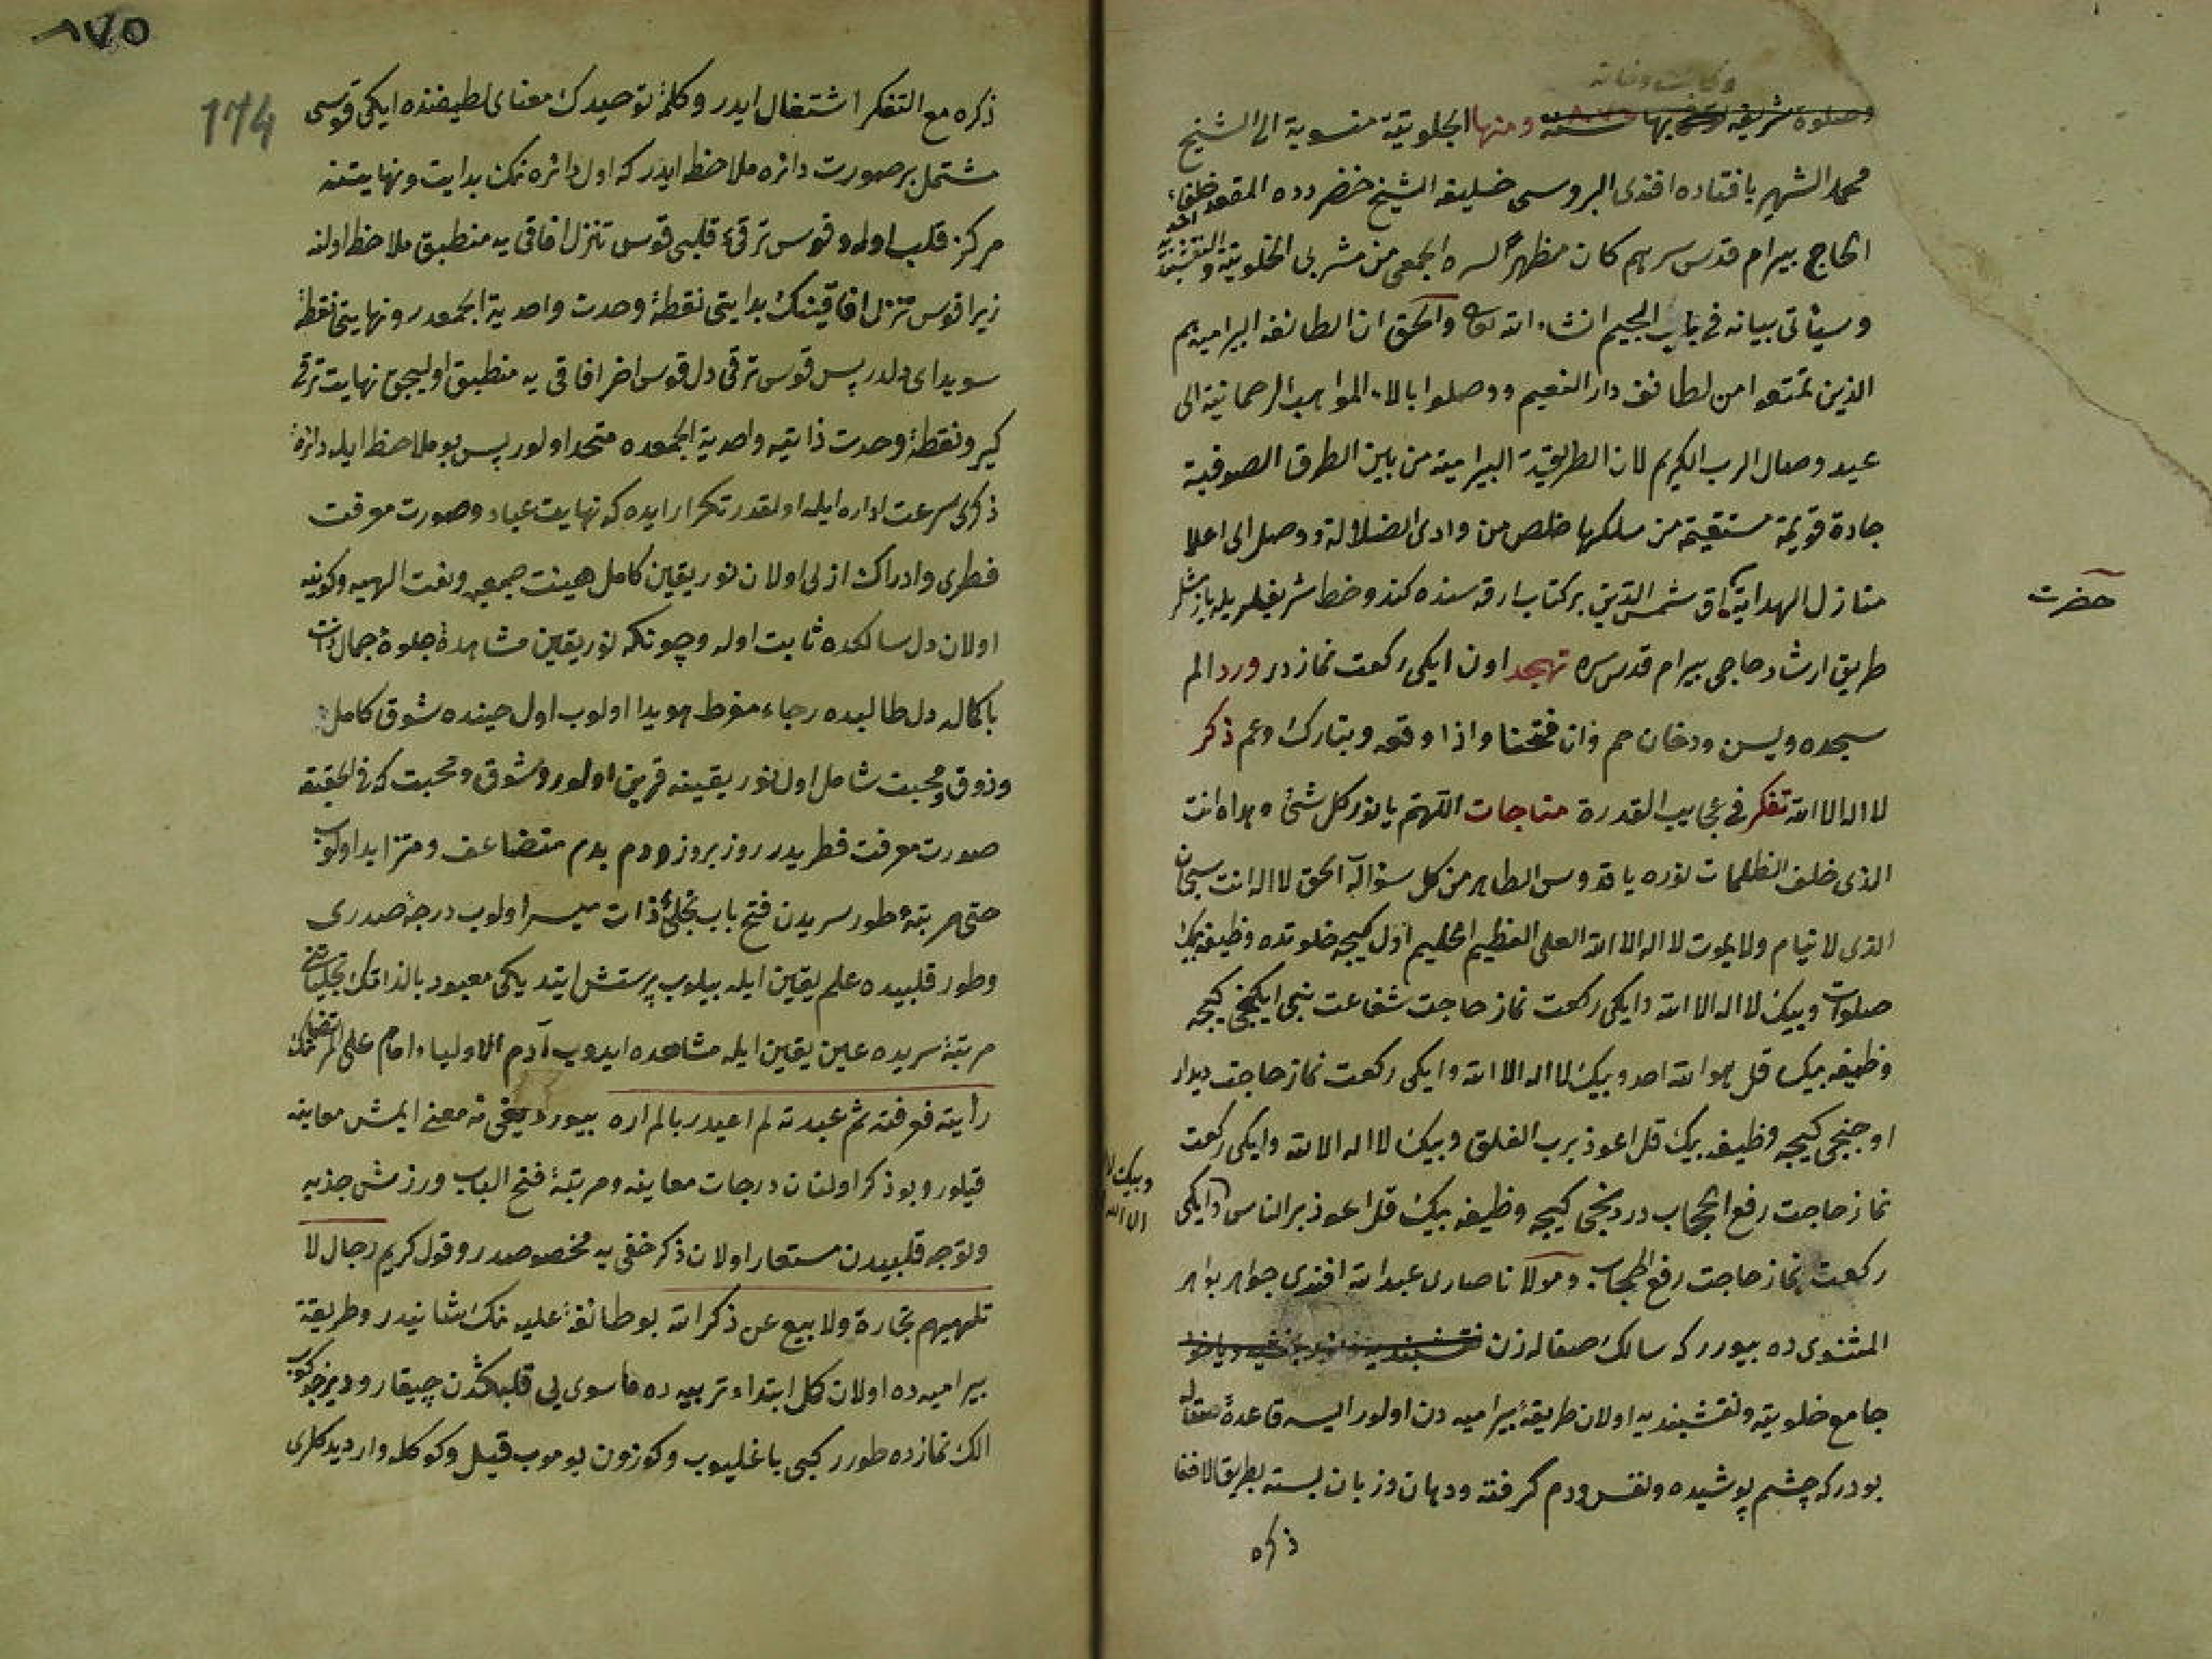 ومنها الجلوتية منسوبة الى الشيخ
محمد الشهير بافتاده افندى البروسى خليفه الشيخ خضر دده المقعد خلفاء
الحاج بيرام قدس سرهم كان مظهرا لسره الجمعى من مشربى الخلوتية والنقشبندية
وسيأتى بيانه فى باب الجيم انشاء الله تعالى والحق ان الطائفه البيراميه هم
الذين تمتعوا من لطائف دار النعيم ووصلوا بالاء المواهب الرحمانية الى
عيد وصال الرب الكريم لان الطريقة البيرامية من بين الطرق الصوفية
جادة قويمة مستقيمة من سلكها خلص من وادى الضلالة ووصل الى اعلا
منازل الهداية اق شمس الدين بر كتاب ارقه سنده كندو خط شريفلريله يازمشلر
حضرت
طريق ارشاد حاجى بيرام قدس سره تهجد اون ايكى ركعت نمازدر ورد الم
سجده ويس ودخان حم وانا فتحنا واذا وقعه وتبارك وعم ذكر
لا اله الا الله تفكر فى عجايب القدرة مناجات اللهم يا نور كل شئ وهداه انت
الذى خلف الظلمات نوره يا قدوس الطاهر من كل سوء اله الحق لا اله انت سبحان
الذى لا ينام ولا يموت لا اله الا الله العلى العظيم الحليم اول كيجه خلوتده وظيفه بيك
صلوات وبيك لا اله الا الله وايكى ركعت نماز حاجت شفاعت نبى ايكنجى كيجه
وظيفه بيك قل هو الله احد وبيك لا اله الا الله وايكى ركعت نماز حاجت ديدار
اوچنجى كيجه وظيفه بيك قل اعوذ برب الفلق وبيك لا اله الا الله وايكى ركعت
نماز حاجت رفع الحجاب دردنجى كيجه وظيفه بيك قل اعوذ برب الناس وايكى
وبيك لا
الا الله
ركعت نماز حاجت رفع الحجاب ومولانا صارى عبد الله افندى جواهر بواهر
المثنوى ده بيورر كه سالك صقاله زن
جامع خلوتيه ونقشبنديه اولان طريقه بيراميه دن اولور ايسه قاعدۀ صقاله
بودر كه چشم پوشيده ونفس ودم گرفته ودهان وزبان بسته بطريق الاخفا
ذكره
٨٧٥
174
ذكره مع التفكر اشتغال ايدر وكلمۀ توحيدك معناى لطيفنده ايكى قوسى
مشتمل بر صورت دائره ملاحظه ايدر كه اول دائره نك بدايت ونهايتنه
مركز قلب اوله وقوس ترقئ قلبى قوس تنزل افاقى يه منطبق ملاحظه اولنه
زيرا قوس تنزل افاقينك بدايتى نقطۀ وحدت واحدية الجمعدر ونهايتى نقطۀ
سويداى دلدر پس قوس ترقى دل قوس اخر افاقى يه منطبق اوليجق نهايت ترقى
گير ونقطۀ وحدت ذاتيه واحدية الجمعده متحد اولور پس بو ملاحظه ايله دائرۀ
ذكرى سرعت اداره ايله اولقدر تكرار ايده كه نهايت عباد وصورت معرفت
فطرى وادراك ازلى اولان نور يقين كامل هيئت جمعيه ونعت الهيه وكونيه
اولان دل سالكده ثابت اوله وچونكه نور يقين مشاهدۀ جلوۀ جمال ذات
باكماله دل طالبده رجاء مفرط هويدا اولوب اول حينده شوق كامل
وذوق ومحبت شامل اول نور يقينه قرين اولور وشوق ومحبت كه فى الحقيقه
صورت معرفت فطريدر روز بروز ودم بدم متضاعف ومتزايد اولوب
حتى مرتبۀ طور سريدن فتح باب تجلئ ذات ميسر اولوب درجۀ صدرى
وطور قلبيده علم يقين ايله بيلوب پرستش ايتديكى معبود بالذاتك تجلياتنى
مرتبۀ سريده عين يقين ايله مشاهده ايدوب آدم الاوليا وامام على المرتضانك
رأيته فعرفته ثم عبدته لم اعبد ربا لم اره بيورديغى نه معنى ايمش معاينه
قيلور وبو ذكر اولنان درجات معاينه ومرتبۀ فتح الباب ورزش جذبه
وتوجه قلبيدن مستعار اولان ذكر خفى يه مخصوصدر وقول كريم رجال لا
تلهيهم تجارة ولا بيع عن ذكر الله بو طائفۀ عليه نك شانيدر وطريقة
بيراميه ده اولان كل ابتداء تربيه ده ماسوى يى قلبكدن چيقار وديز چوكوب
الك نمازده طورر كبى باغليوب وكوزون يوموب قيل وكوكله وارديدكلرى